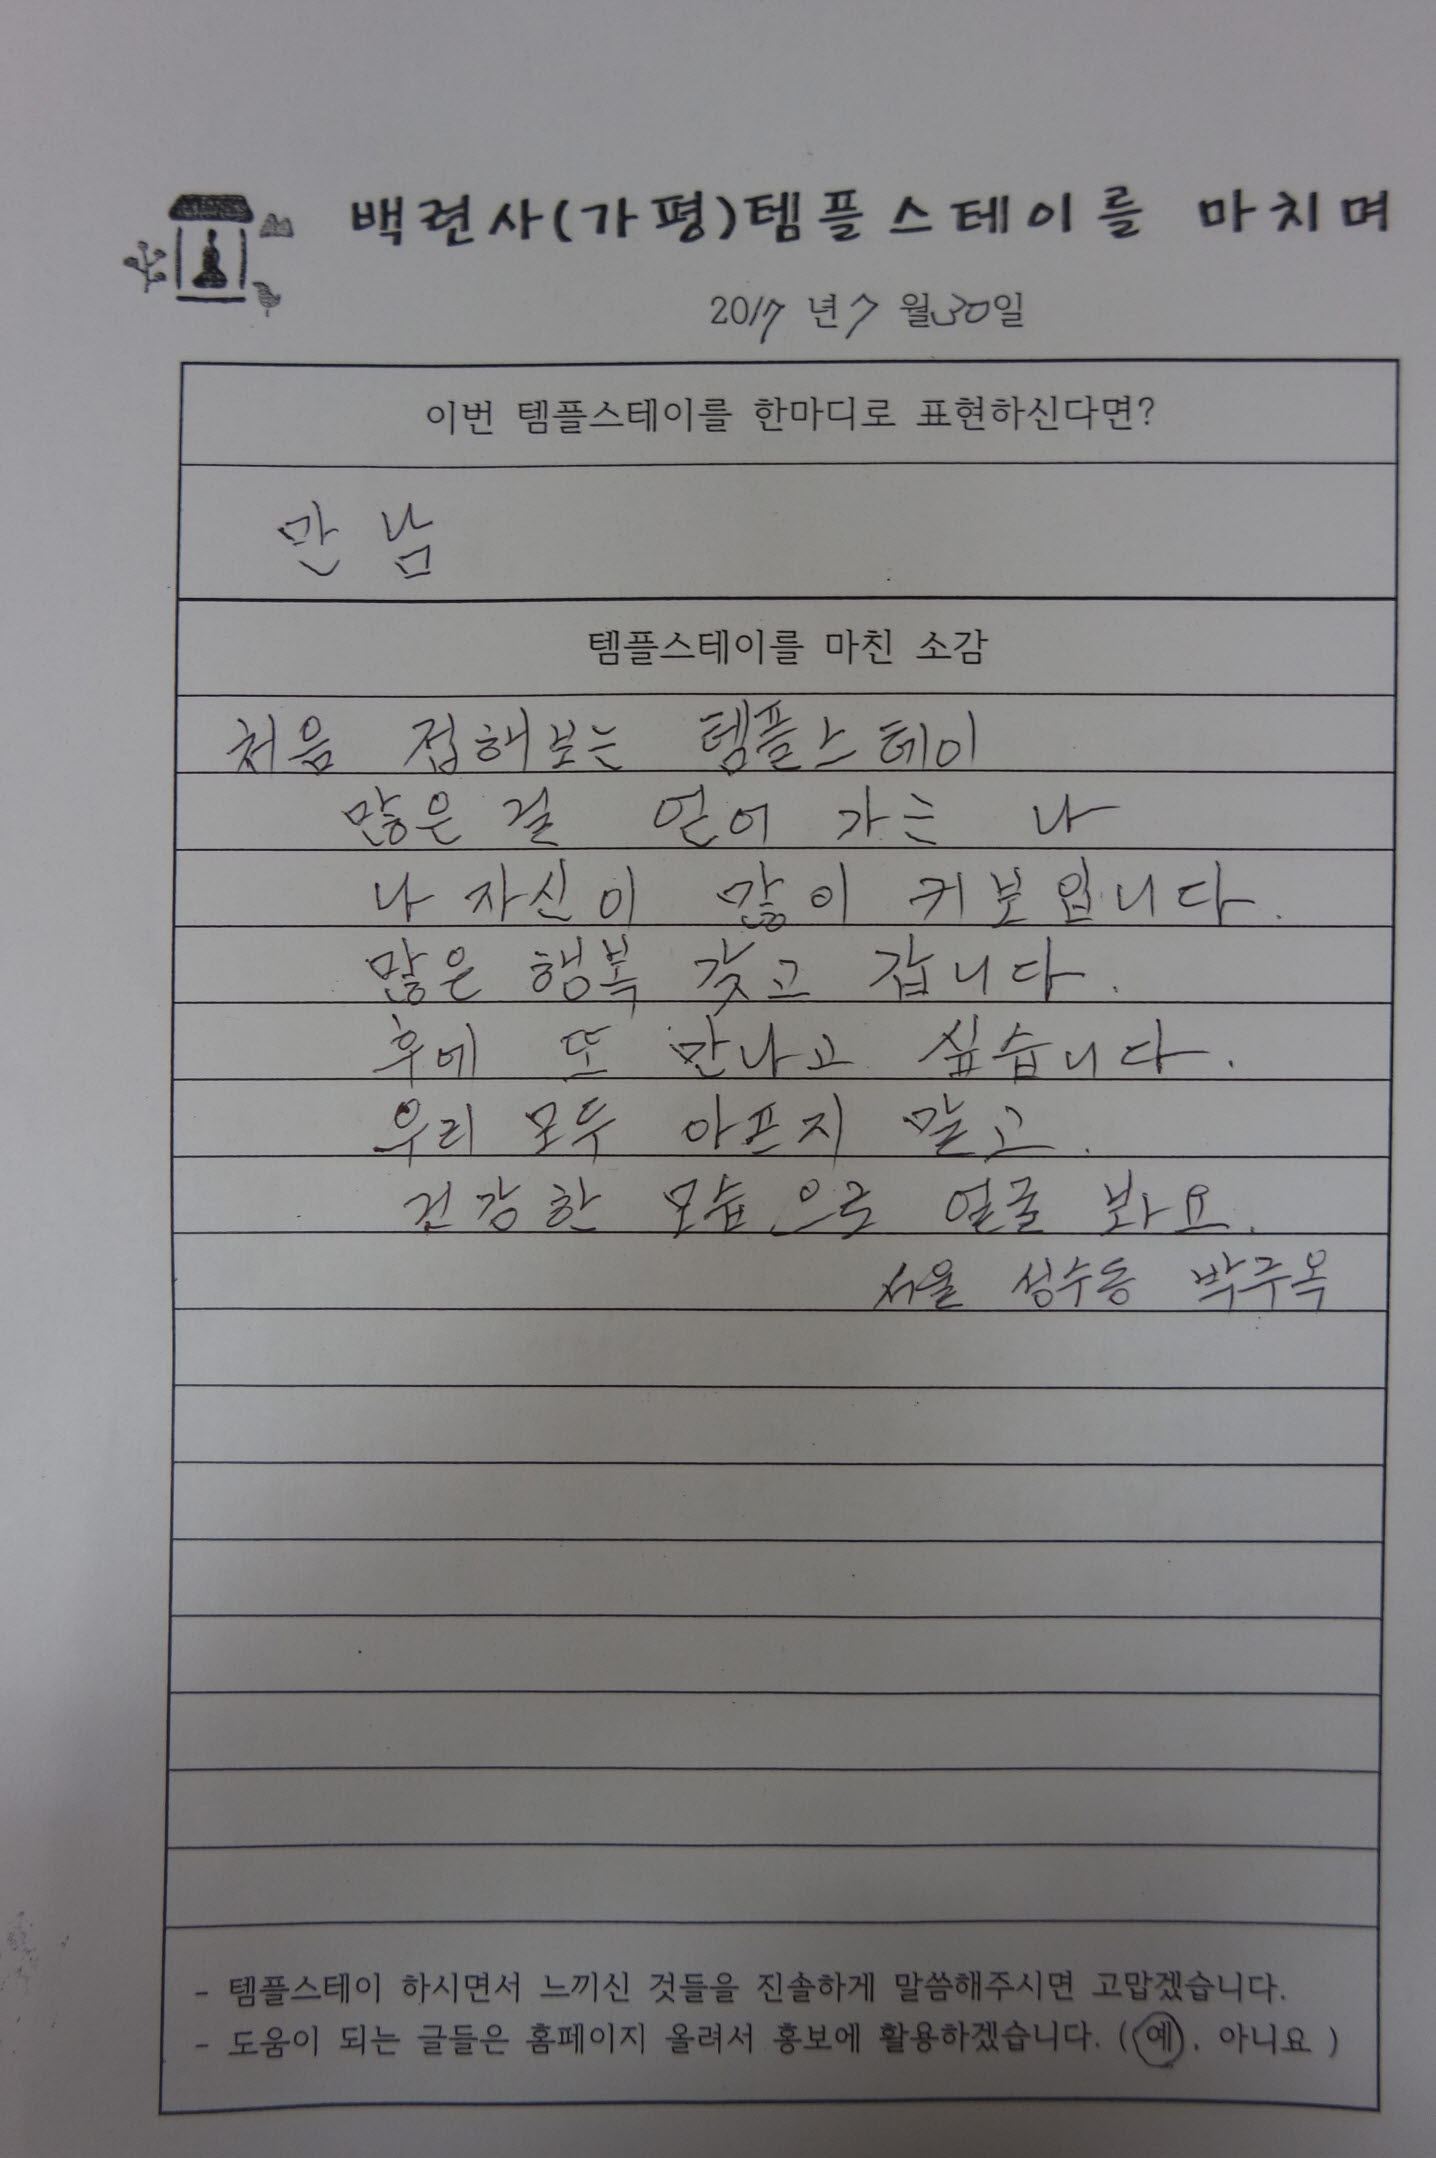 백련사(가평)템플스테이를 마치며
2017년 7월 30일
이번 템플스테이를 한마디로 표현하신다면?
만남
템플스테이를 마친 소감
처음 접해보는 템플스테이
많은 걸 얻어 가는 나
나 자신이 많이 커보입니다.
많은 행복 갖고 갑니다.
후에 또 만나고 싶습니다.
우리 모두 아프지 말고.
건강한 모습으로 얼굴 봐요.
서울 성수동 박주옥
- 템플스테이 하시면서 느끼신 것들을 진솔하게 말씀해주시면 고맙겠습니다.
- 도움이 되는 글들은 홈페이지 올려서 홍보에 활용하겠습니다. ( 예, 아니요 )